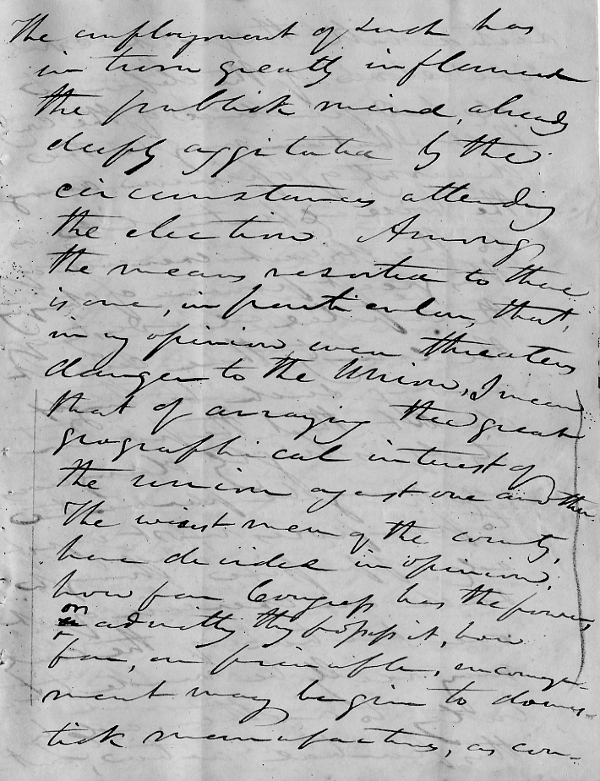 The employment of such has
in turn greatly inflamed
the publick mind, already
deeply aggitated by the
circumstances attending
the election. Among
the means resorted to there
is one, in particular, that,
in my opinion even threatens
danger to the Union, I mean
that of arraying the great
geographical interest of
the union against one another
The wisest men of the country,
have divided in opinion,
how far Congress has the power
or admitting they possess it, how
far, on principle, encourage-
ment may be given to domes-
tick manufactures, as con-